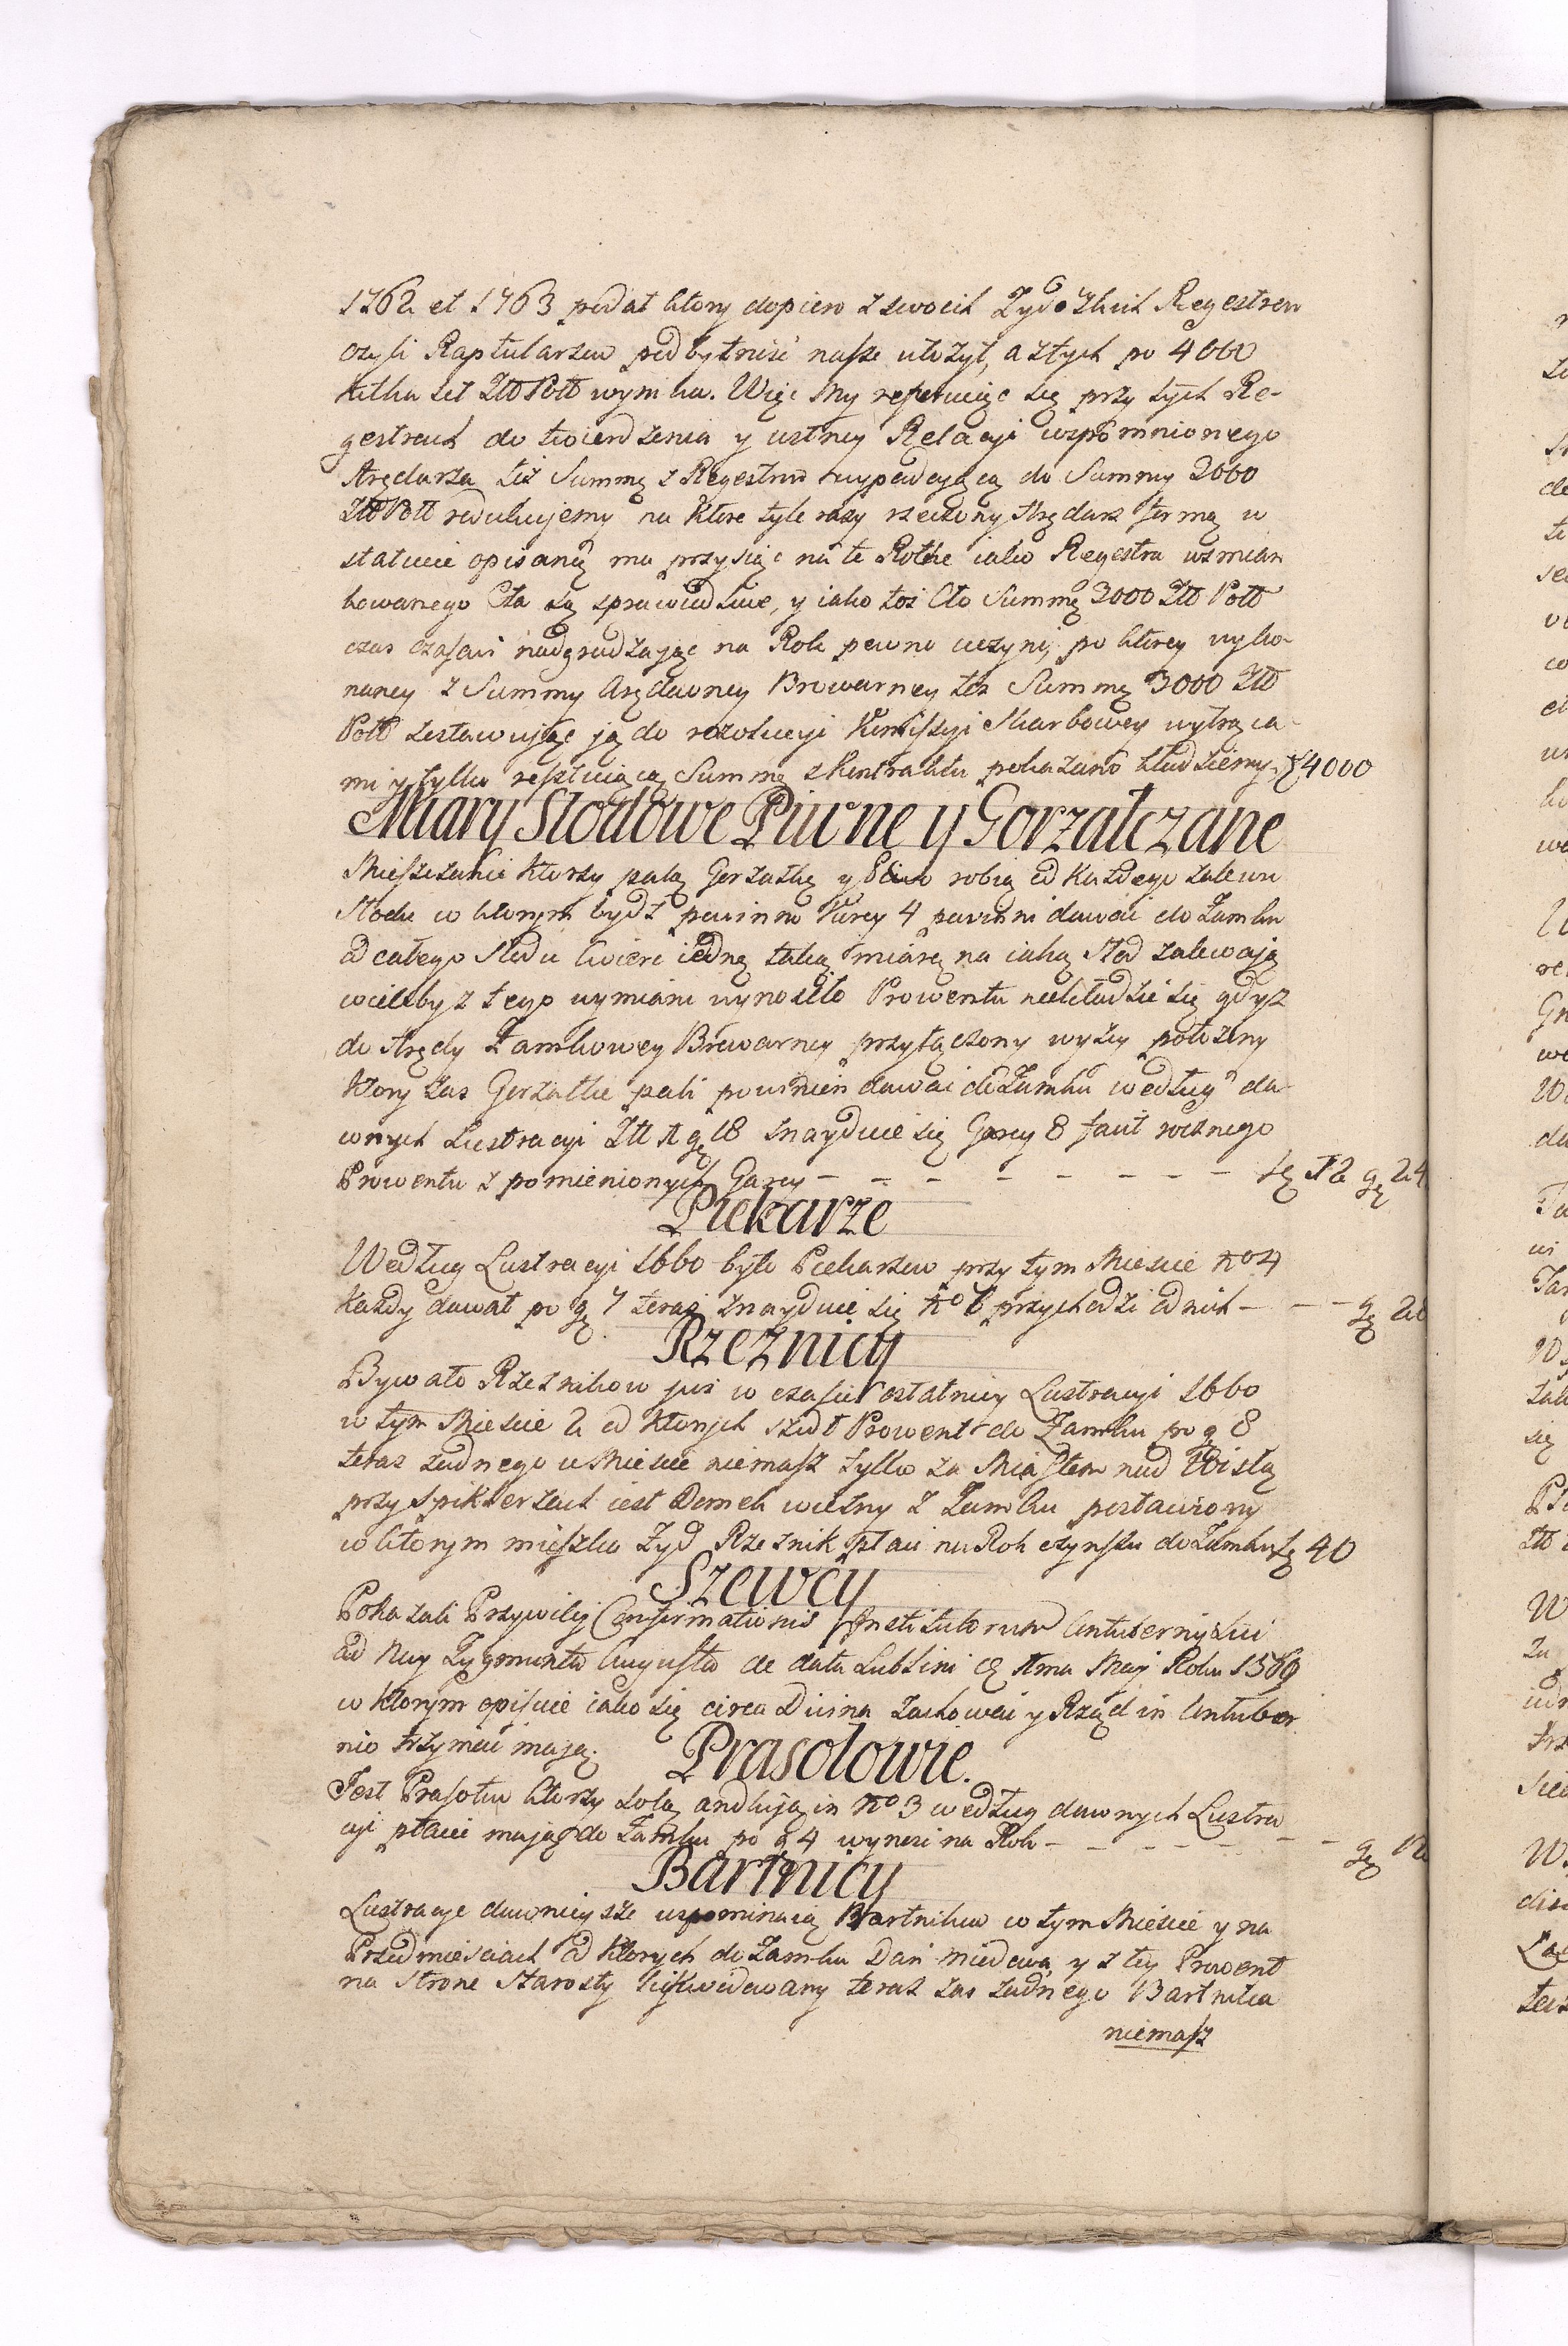 1762 et 1763 podał ktory dopiero z swoich Zydo zkich Regestrow
czyli Raptularzow pod bytność nasze ułożył, a z tych po 4000
kilka set Złł Poll wynika. Więc my referuiąc się przy tych Re-
gestrach do twierdzenia y ustney Relacyi wspomnionego
Arędarza też Summę z Regestrow wypadaiącą do Summy 3000
Złł Poll redukujemy na ktore tyle razy rzeczony Arędarz formą w
statucie opisaną ma przysiąc na te Rothe iako Regestra wzmian
kowanego Cła są sprawiedliwe, y iako toż Cło Summę 3000 Złł Poll
czas czasowi nadgradzaiąc na Rok pewno uczyni, po ktorey wyko-
naney z Summy Arędowney Browarney też Summę 3000 Złł
Poll zostawuiąc ją do rezolucyi Kommissyi Skarbowey wytrąca-
my y tylko resztuiącą Summę z Kontraktu pokazaną kładziemy. zł 4000
Miary Słodowe Piwne y Gorzałczane
Mieszczanie ktorzy palą Gorzałkę y Piwo robią od każdego zalewu
Słodu w ktorym bydź powinno Korcy 4 powinni dawać do Zamku
od całego Słodu Cwierć iedną taką miarę na iaką Słod zalewaią
wieleby z tego wymiaru wynosiło Prowentu niekładzie się gdyz
do Arędy Zamkowey Browarney przyłączony wyżey położony
ktory zas Gorzałkę pali powinien dawać do Zamku według da-
wnych Lustracyi Złł 1 gr 18 znayduie się Garcy 8 facit rocznego
Prowentu z pomienionych Garcy — — — — — — — zł 12 gr 24
Piekarze
Według Lustracyi 1660 było Piekarzow przy tym Miescie No 4
Każdy dawał po gr 7 teraz znayduie się No przychodzi od nich — — — gr 28
Rzeznicy
Bywało Rzeznikow już w czasie ostatniey Lustracyi 1660
w tym Miescie 2 od ktorych szedł Prowent do Zamku po g 8
teraz żadnego w Miescie niemasz tylko za Miastem nad Wisłą
przy Spiklerzach iest Domek wiezny z Zamku postawiony
w ktorym mieszka Zyd Rzeznik płaci na Rok czynszu do Zamku zł 40
Szewcy
Pokazali Przywiley Confirmationis Institutorum Contubernij sui
od Nay Zygmunta Augusta de data Lublini 1ma Maij Roku 1569
w ktorym opisuie iako się circa Divina zachować y Rząd in Contuber
nio trzymać maią.
Prasołowie.
Jest Prasołow ktorzy solą andluią in No 3 według dawnych Lustra
cyi płacić maią do Zamku po g 4 wynosi na Rok — — — — — — gr 12
Bartnicy
Lustracye dawnieysze wspominaią Bartnikow w tym Miescie y na
Przedmiesciach od ktorych do Zamku Dań miodowa y z tey Prowent
na Strone Starosty likwidowany teraz zas żadnego Bartnika
niemasz